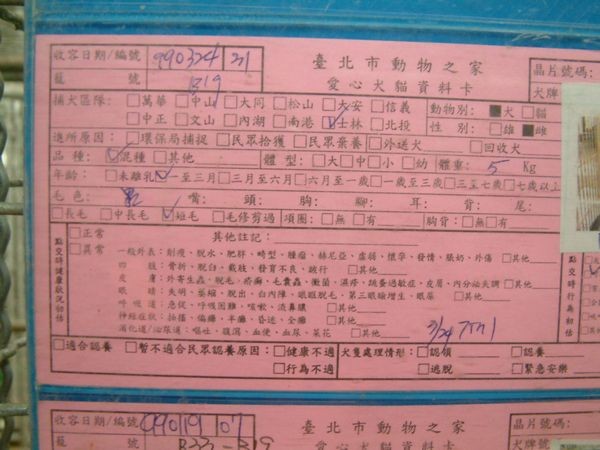 收容日期/編號 990324 21 臺北市動物之家 晶片號碼:
籠號 B19 愛心犬貓資料卡 犬牌
捕犬區隊: □萬華 □中山 □大同 □松山 □大安 □信義 動物別: ■犬 □貓
□中正 □文山 □內湖 □南港 ☑士林 □北投 性別: □雄 ■雌
進所原因: □環保局捕捉 □民眾拾獲 □民眾棄養 □外送犬 □回收犬
品種: ☑混種 □其他 體型: □大 □中 □小 □幼 體重: 5 Kg
年齡: □未離乳 ☑一至三月 □三月至六月 □六月至一歲 □一歲至三歲 □三至七歲 □七歲以上
毛色: 黑 嘴: 頭: 胸: 腳: 耳: 背: 尾:
□長毛 □中長毛 ☑短毛 □毛修剪過 項圈: □無 □有 胸背: □無 □有
點交時健康狀況初估
□正常 其他註記:
□異常 一般外表: 削瘦、脫水、肥胖、畸型、腫瘤、赫尼亞、虛弱、懷孕、發情、脹奶、外傷 □其他
四肢: 骨折、脫臼、截肢、發育不良、跛行 □其他
皮膚: 外寄生蟲、脫毛、疥癬、毛囊蟲、黴菌、濕疹、跳蚤過敏症、皮屑、內分泌失調 □其他
眼睛: 失明、萎縮、脫出、白內障、眼瞼脫毛、第三眼瞼增生、眼屎 □其他
呼吸道: 急促、呼吸困難、咳嗽、流鼻膿 □其他
神經症狀: 抽搐、偏癱、半癱、昏迷、全癱 □其他
消化道/泌尿道: 嘔吐、腹瀉、血便、血尿、菜花 □其他
3/24
點交時行為初估
□適合認養 □暫不適合民眾認養原因: □健康不適 犬隻處理情形: □認領 □認養
□行為不適 □逃脫 □緊急安樂
收容日期/編號 990119 07 臺北市動物之家 晶片號碼:
籠號 B33-B19 愛心犬貓資料卡 犬牌號